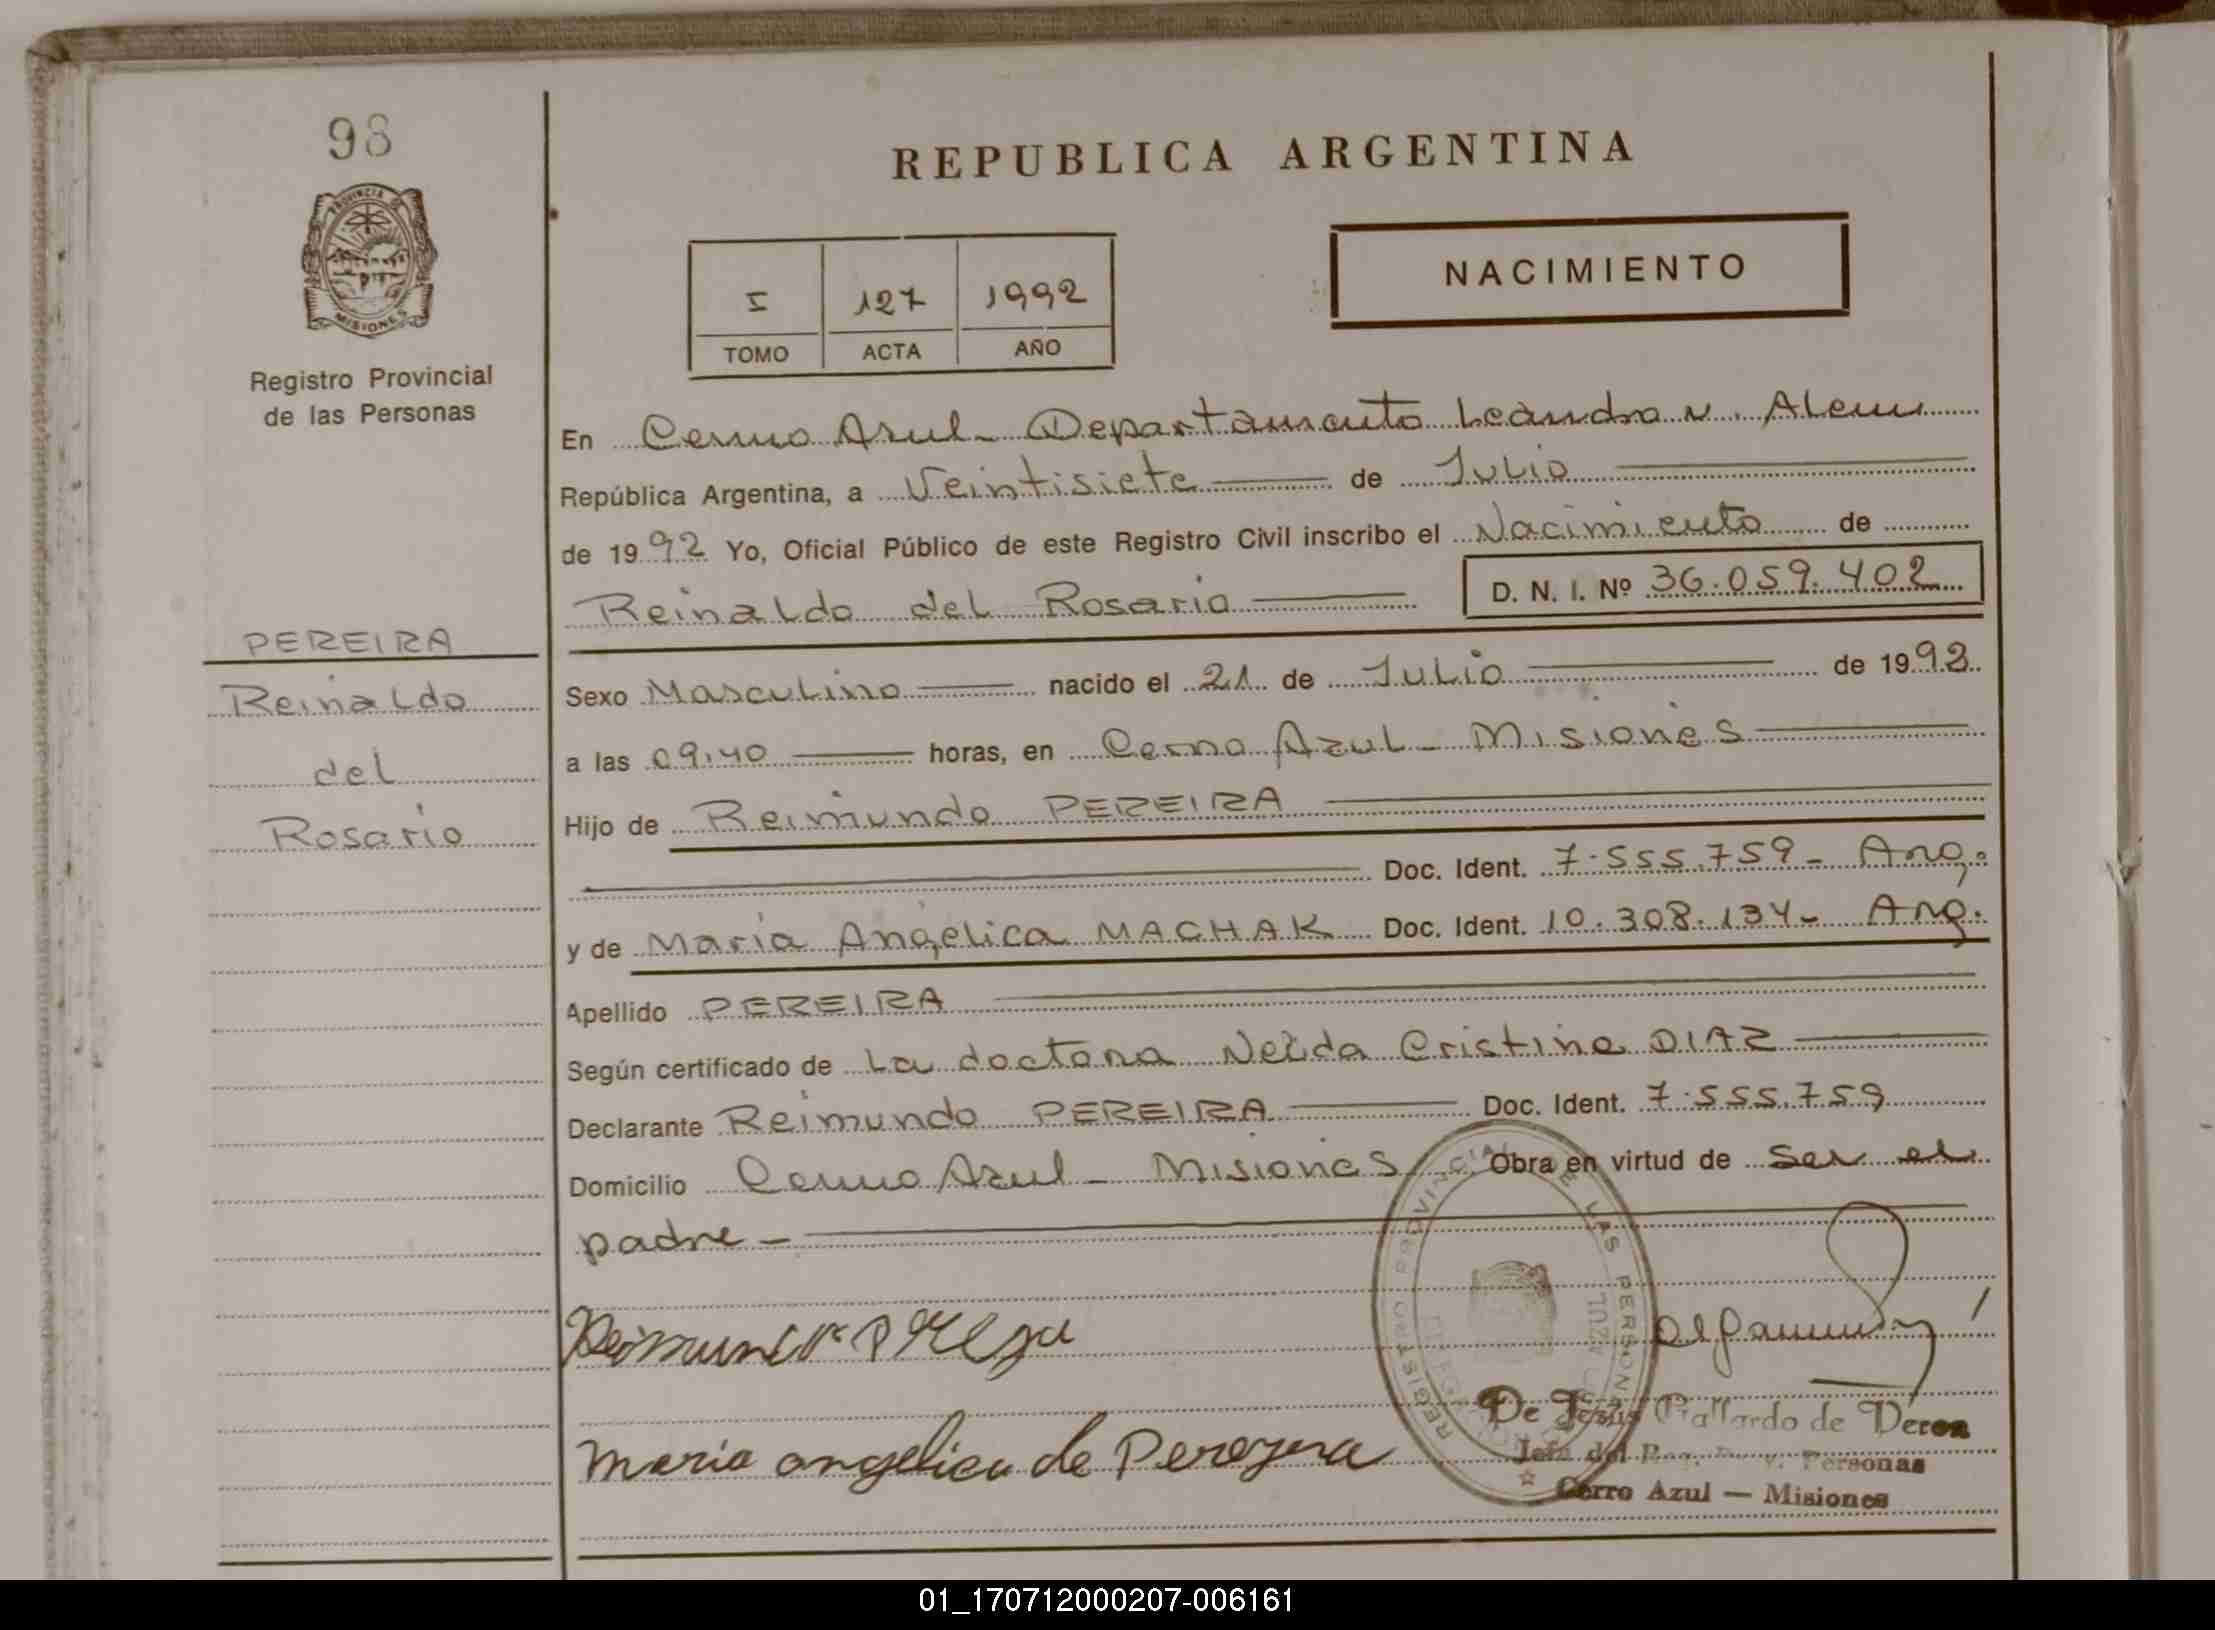 98
PROVINCIA DE
MISIONES
Registro Provincial
de las Personas
PEREIRA
Reinaldo
del
Rosario
REPUBLICA ARGENTINA
I 127 1992
TOMO ACTA AÑO
NACIMIENTO
En Cerro Azul - Departamento Leandro N. Alem
República Argentina, a Veintisiete de Julio
de 1992 Yo, Oficial Público de este Registro Civil inscribo el Nacimiento de
Reinaldo del Rosario D. N. I. Nº 36.059.402
Sexo Masculino nacido el 21 de Julio de 1992
a las 09,40 horas, en Cerro Azul - Misiones
Hijo de Reimundo PEREIRA
Doc. Ident. 7.555.759 - Arg.
y de Maria Angélica MACHAK Doc. Ident. 10.308.134 - Arg.
Apellido PEREIRA
Según certificado de La doctora Nélida Cristina DIAZ
Declarante Reimundo PEREIRA Doc. Ident. 7.555.759
Domicilio Cerro Azul - Misiones Obra en virtud de ser el
padre -
REGISTRO PROVINCIAL DE LAS PERSONAS
maria angelica de Pereyra
De Jesús Gallardo de Veron
Jefa del Reg. Personas
Cerro Azul — Misiones
01_170712000207-006161